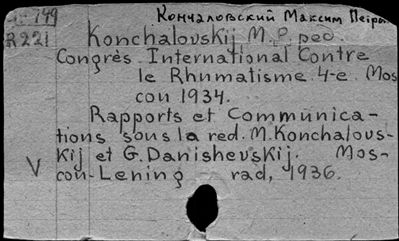 Кончаловский Максим Петров
749
R221 Konchalovskij M.P. ped.
Congrès International Contre
le Rhumatisme 4-e Mos
cou 1934.
Rapports et Communica-
tions sous la red. M. Konchalovs-
kij et G. Danishevskij. Mos-
V
cou-Leningrad, 1936.